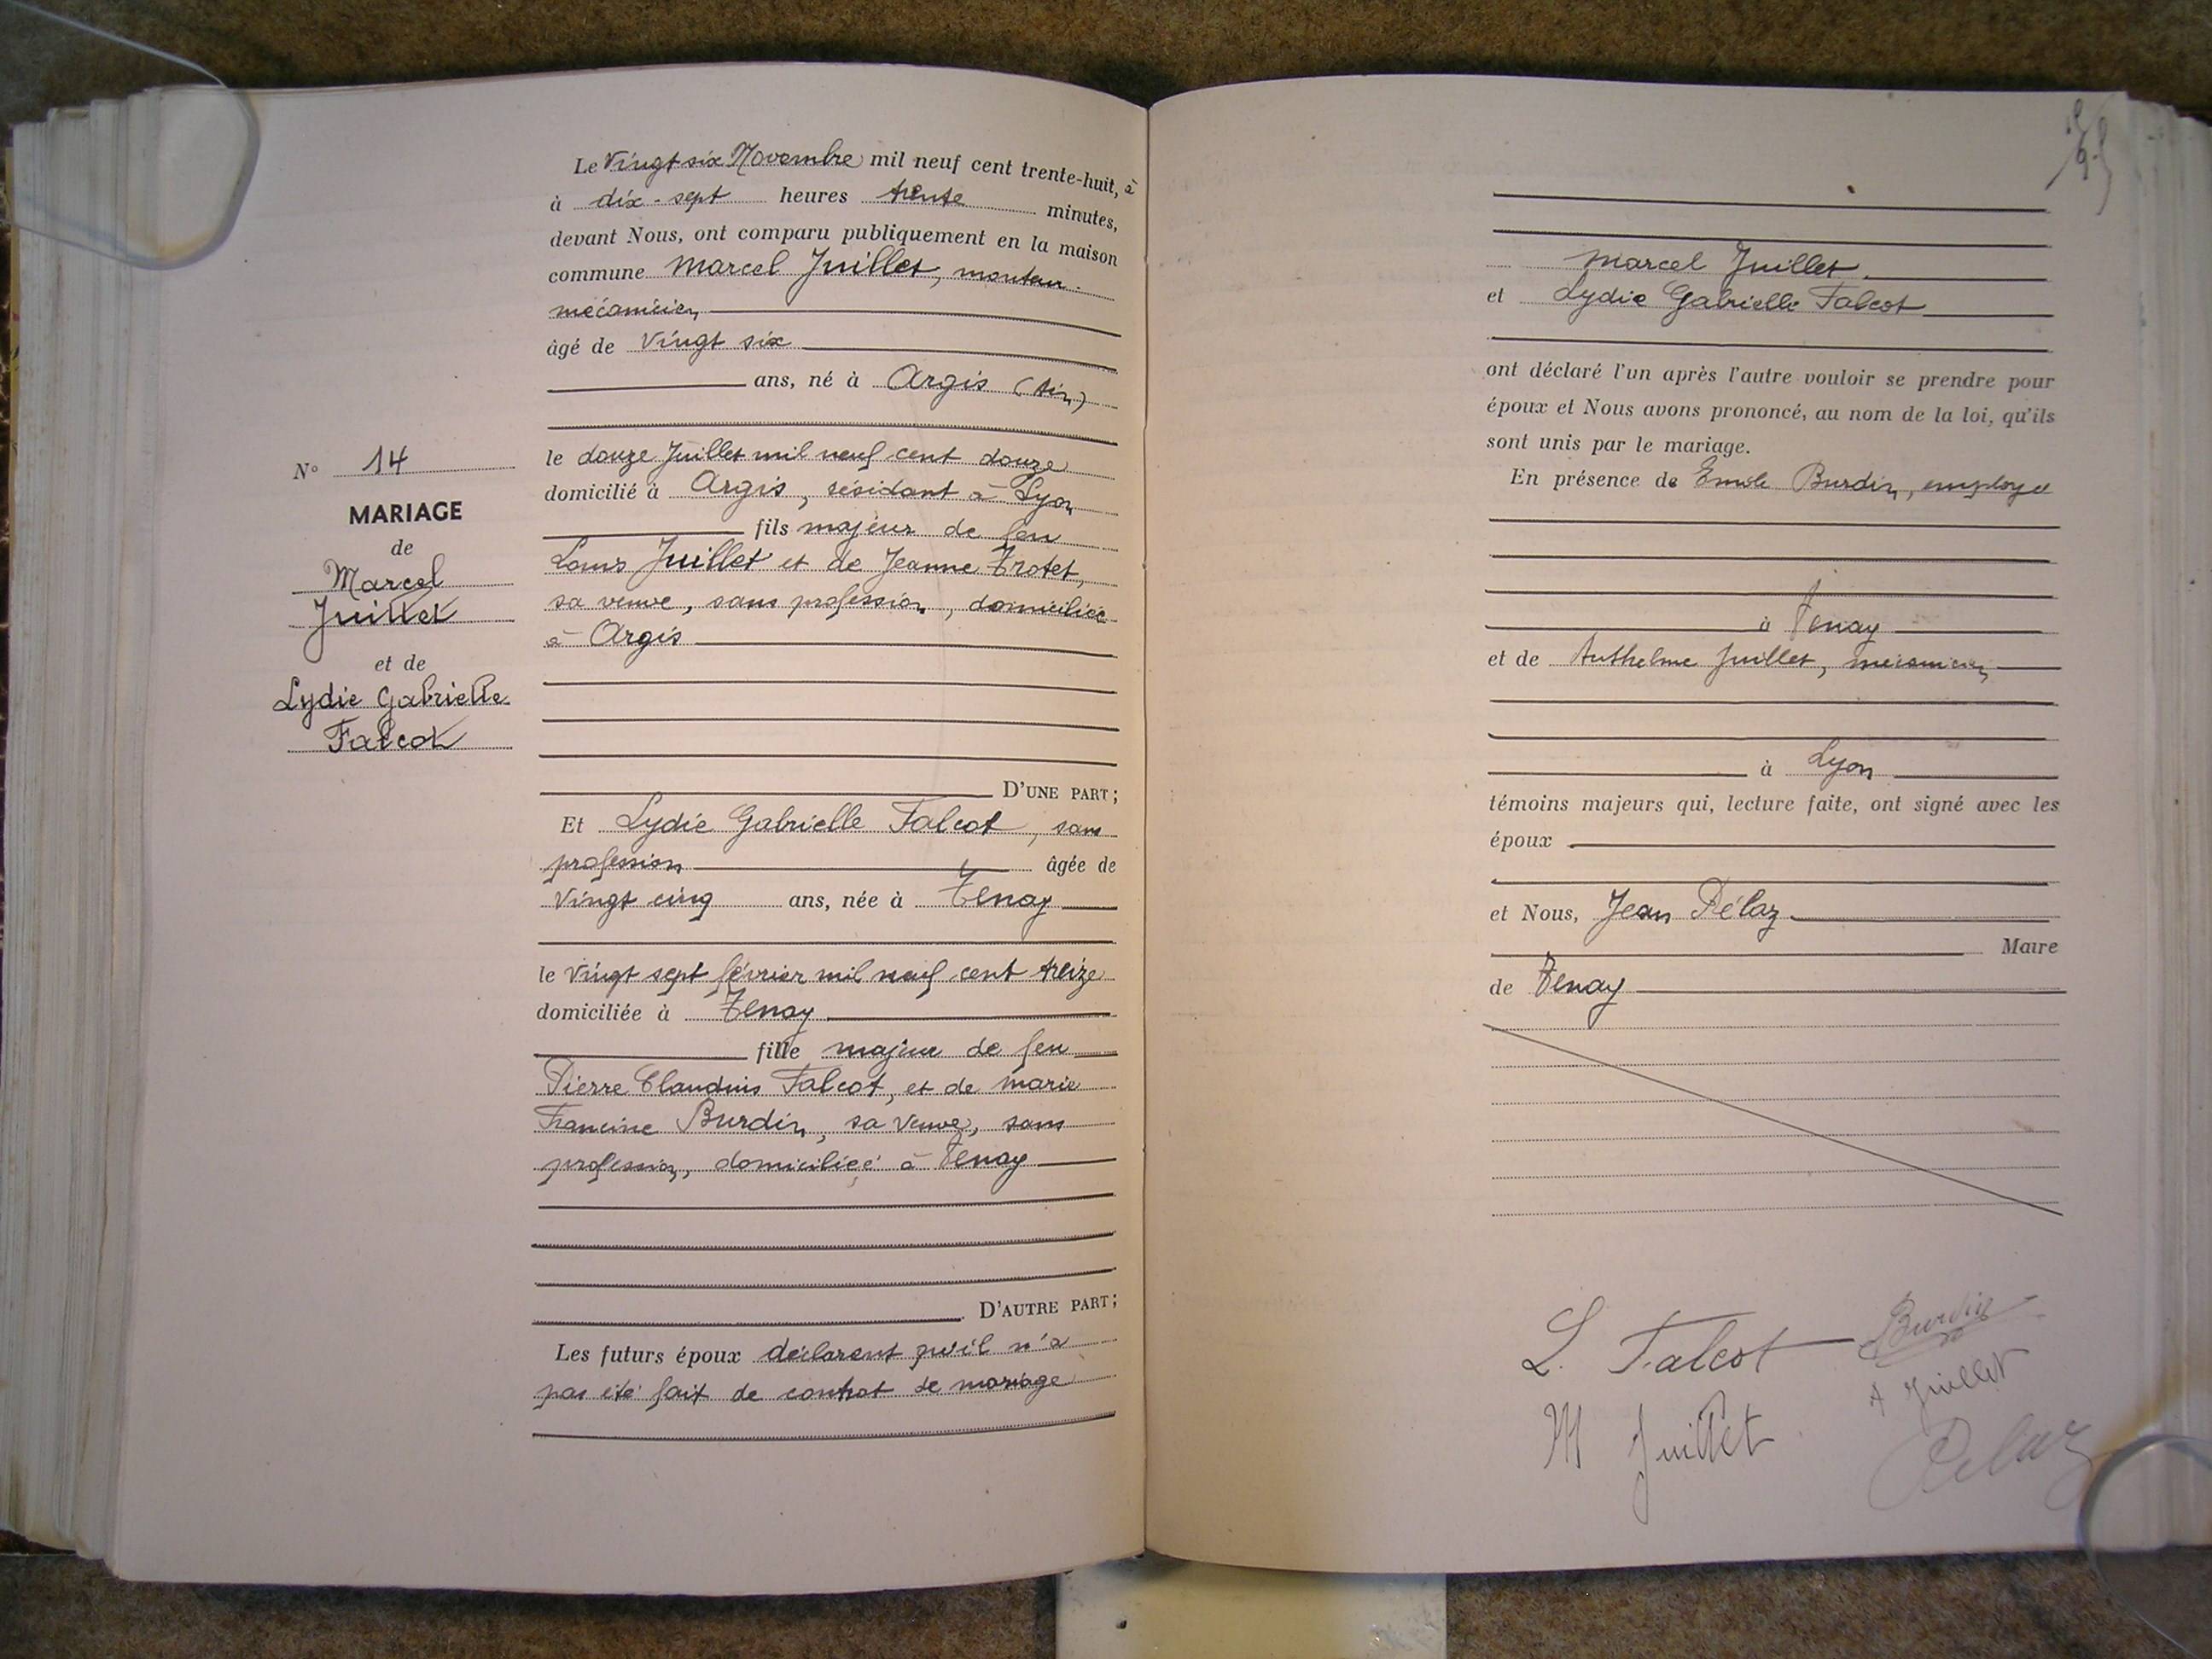 Le Vingt six Novembre mil neuf cent trente-huit, à
à dix-sept heures trente minutes,
devant Nous, ont comparu publiquement en la maison
commune Marcel Juillet, monteur-
mécanicien
âgé de Vingt six
ans, né à Argis (Ain)
le douze Juillet mil neuf cent douze
domicilié à Argis, résidant à Lyon
fils majeur de feu
Louis Juillet et de Jeanne Trotet,
sa veuve, sans profession, domiciliée
à Argis
N° 14
MARIAGE
de
Marcel
Juillet
et de
Lydie Gabrielle
Falcot
D'UNE PART;
Et Lydie Gabrielle Falcot, sans
profession âgée de
Vingt cinq ans, née à Tenay
le Vingt sept février mil neuf cent treize
domiciliée à Tenay
fille majeure de feu
Pierre Claudius Falcot, et de Marie
Francine Burdin, sa veuve, sans
profession, domiciliée à Tenay
D'AUTRE PART;
Les futurs époux déclarent qu'il n'a
pas été fait de contrat de mariage
Marcel Juillet
et Lydie Gabrielle Falcot
ont déclaré l'un après l'autre vouloir se prendre pour
époux et Nous avons prononcé, au nom de la loi, qu'ils
sont unis par le mariage.
En présence de Emile Burdin, employé
à Tenay
et de Anthelme Juillet, mécanicien
à Lyon
témoins majeurs qui, lecture faite, ont signé avec les
époux
et Nous, Jean Pélaz
Maire
de Tenay
L. Falcot Burdin
A Juillet
M Juillet
Pelaz